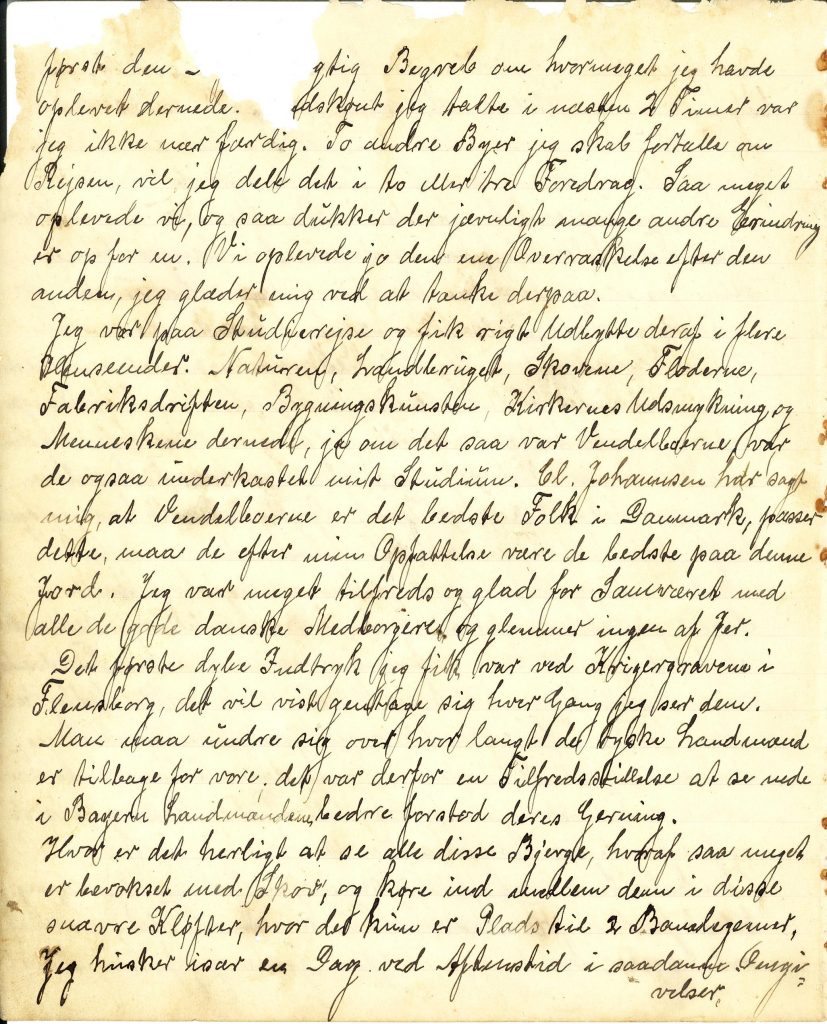 først den gtig Begreb om hvormeget jeg havde
oplevet dernede. dskønt jeg talte i næsten 2 Timer var
jeg ikke nær færdig. To andre Byer jeg skal fortælle om
Rejsen, vil jeg dele det i to eller tre Foredrag. Saa meget
oplevede vi, og saa dukker der jævnligt mange andre Erindring
er op for en. Vi oplevede jo den ene Overraskelse efter den
anden, jeg glæder mig ved at tænke derpaa.
Jeg var paa Studierejse og fik rigt Udbytte deraf i flere
Henseender. Naturen, Landbruget, Skovene, Floderne,
Fabriksdriften, Bygningskunsten, Kirkernes Udsmykning, og
Menneskene dernede, ja om det saa var Vendelboerne, var
de ogsaa underkastet mit Studium. Cl. Johannsen har sagt
mig, at Vendelboerne er det bedste Folk i Danmark, passer
dette, maa de efter min Opfattelse være de bedste paa denne
Jord. Jeg var meget tilfreds og glad for Samværet med
alle de gode danske Medborgere, og glemmer ingen af Jer.
Det første dybe Indtryk jeg fik var ved Krigergravene i
Flensborg, det vil vist gentage sig hver Gang jeg ser dem.
Man maa undre sig over hvor langt de tyske Landmænd
er tilbage for vore, det var derfor en Tilfredsstillelse at se nede
i Bayern Landmændene bedre forstod deres Gerning.
Hvor er det herligt at se alle disse Bjerge, hvoraf saa meget
er bevokset med Skov, og køre ind mellem dem i disse
snævre Kløfter, hvor der kun er Plads til 2 Banelegemer,
Jeg husker især en Dag ved Aftenstid i saadanne Omgi=
velser,